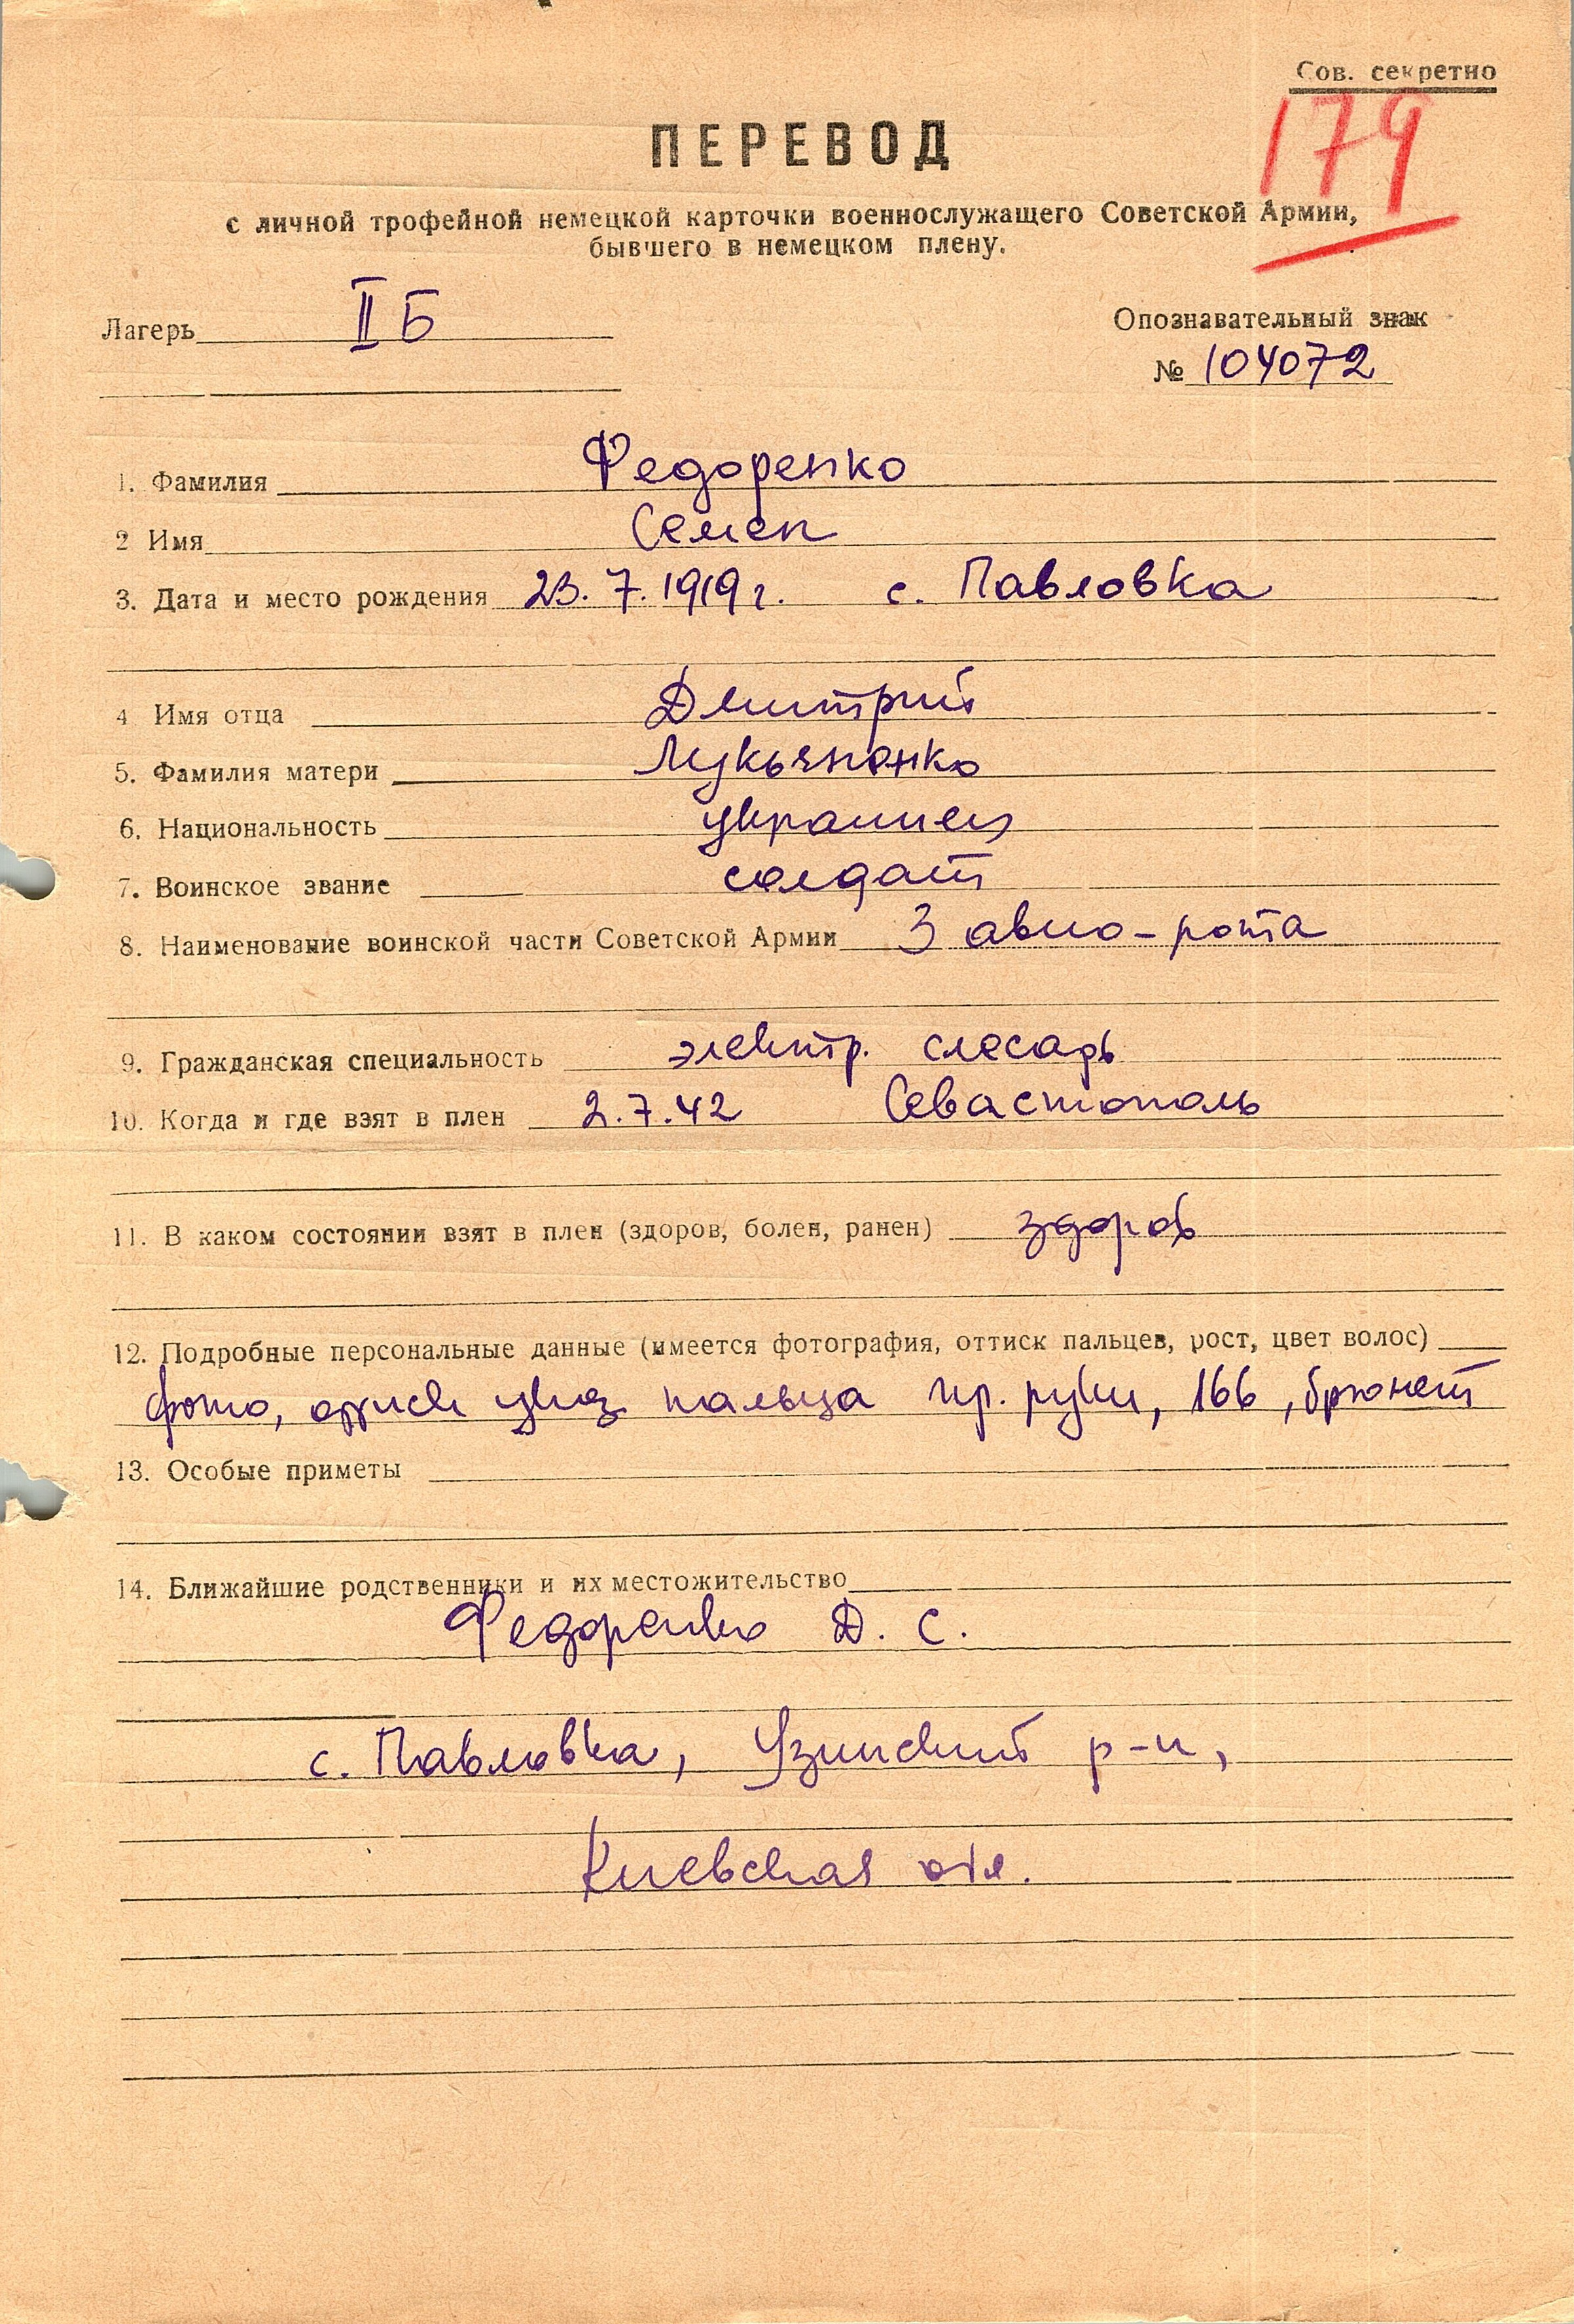 Сов. секретно
179
ПЕРЕВОД
с личной трофейной немецкой карточки военнослужащего Советской Армии,
бывшего в немецком плену.
Лагерь II Б
Опознавательный знак
№ 104072
1. Фамилия Федоренко
2 Имя Семен
3. Дата и место рождения 23.7.1919г. с. Павловка
4 Имя отца Дмитрий
5. Фамилия матери Лукьяненко
6. Национальность украинец
7. Воинское звание солдат
8. Наименование воинской части Советской Армии 3 авио-рота
9. Гражданская специальность электр. слесарь
10. Когда и где взят в плен 2.7.42 Севастополь
11. В каком состоянии взят в плен (здоров, болен, ранен) здоров
12. Подробные персональные данные (имеется фотография, оттиск пальцев, рост, цвет волос)
фото, оттиск указ. пальца пр. руки, 166, брюнет
13. Особые приметы
14. Ближайшие родственники и их местожительство
Федоренко Д. С.
с. Павловка, Узинский р-н,
Киевская обл.